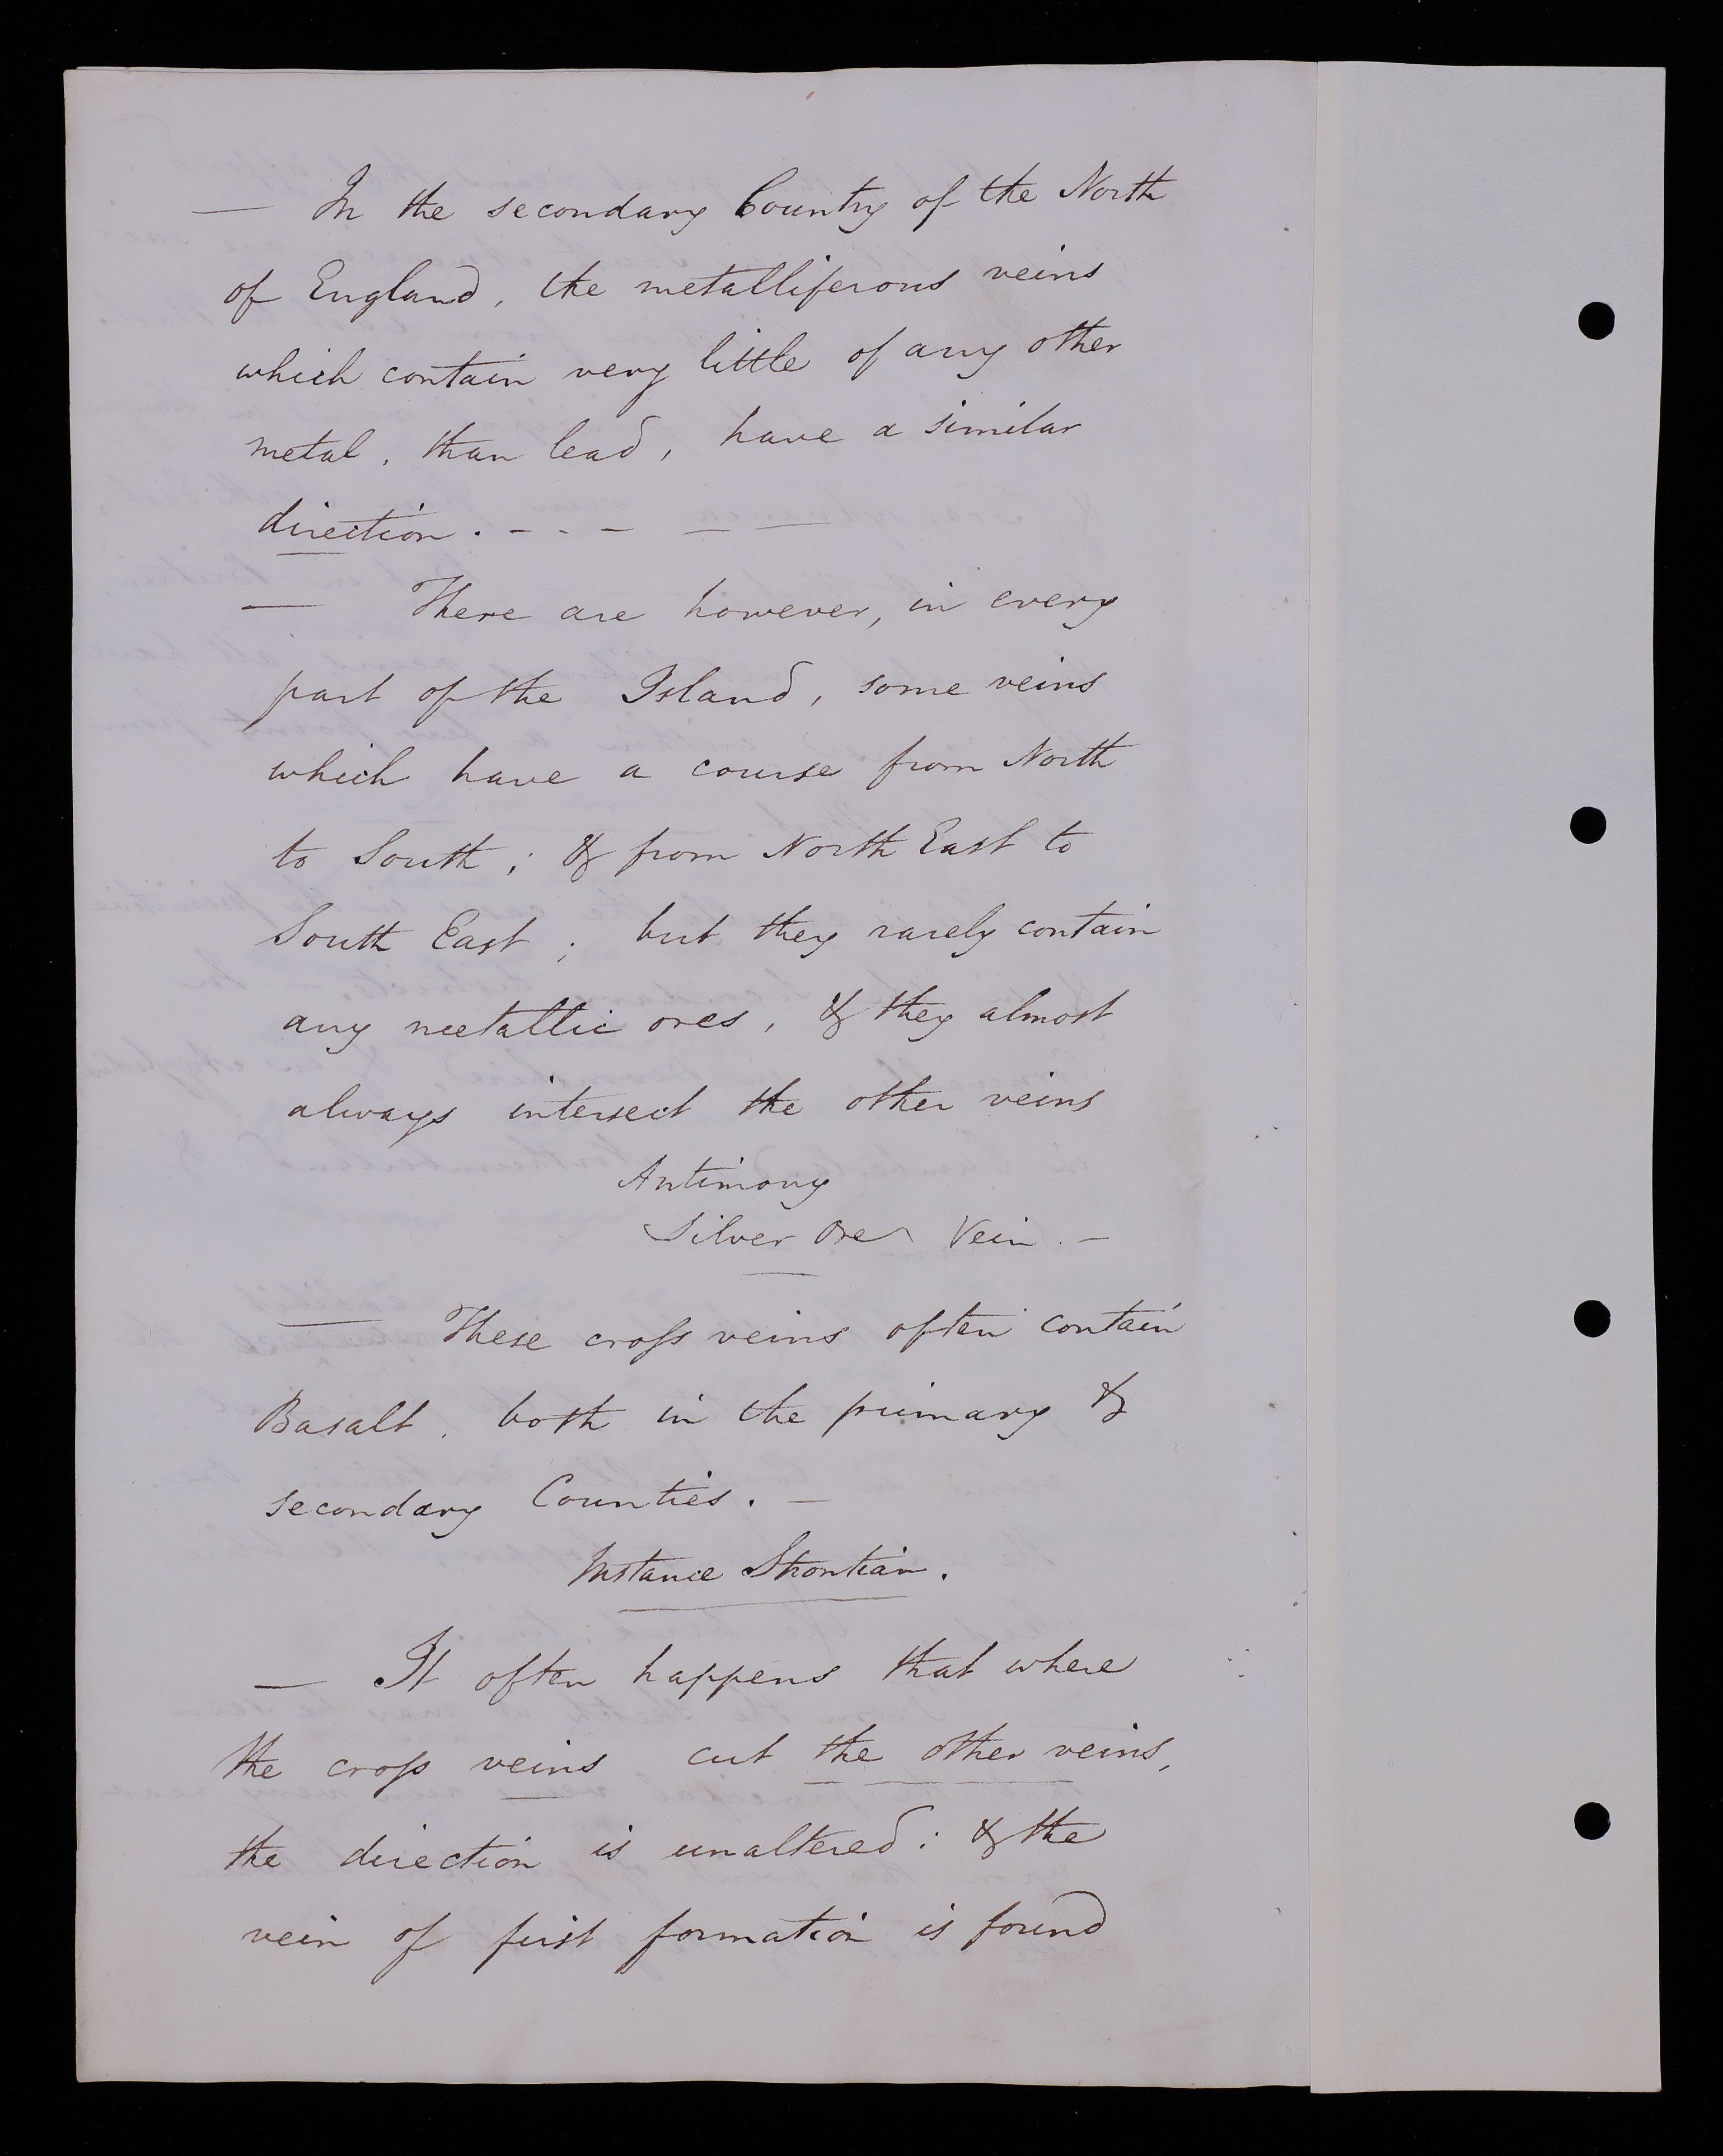 — In the secondary Country of the North
of England, the metalliferous veins
which contain very little of any other
metal, than lead, have a similar
direction. - - - — —
— There are however, in every
part of the Island, some veins
which have a course from North
to South; & from North East to
South East; but they rarely contain
any metallic ores, & they almost
always intersect the other veins
Antimony
Silver Ore Vein. —
— These cross veins often contain
Basalt, both in the primary &
secondary Counties. —
Instance Strontian.
— It often happens that where
the cross veins cut the other veins,
the direction is unaltered: & the
vein of first formation is found